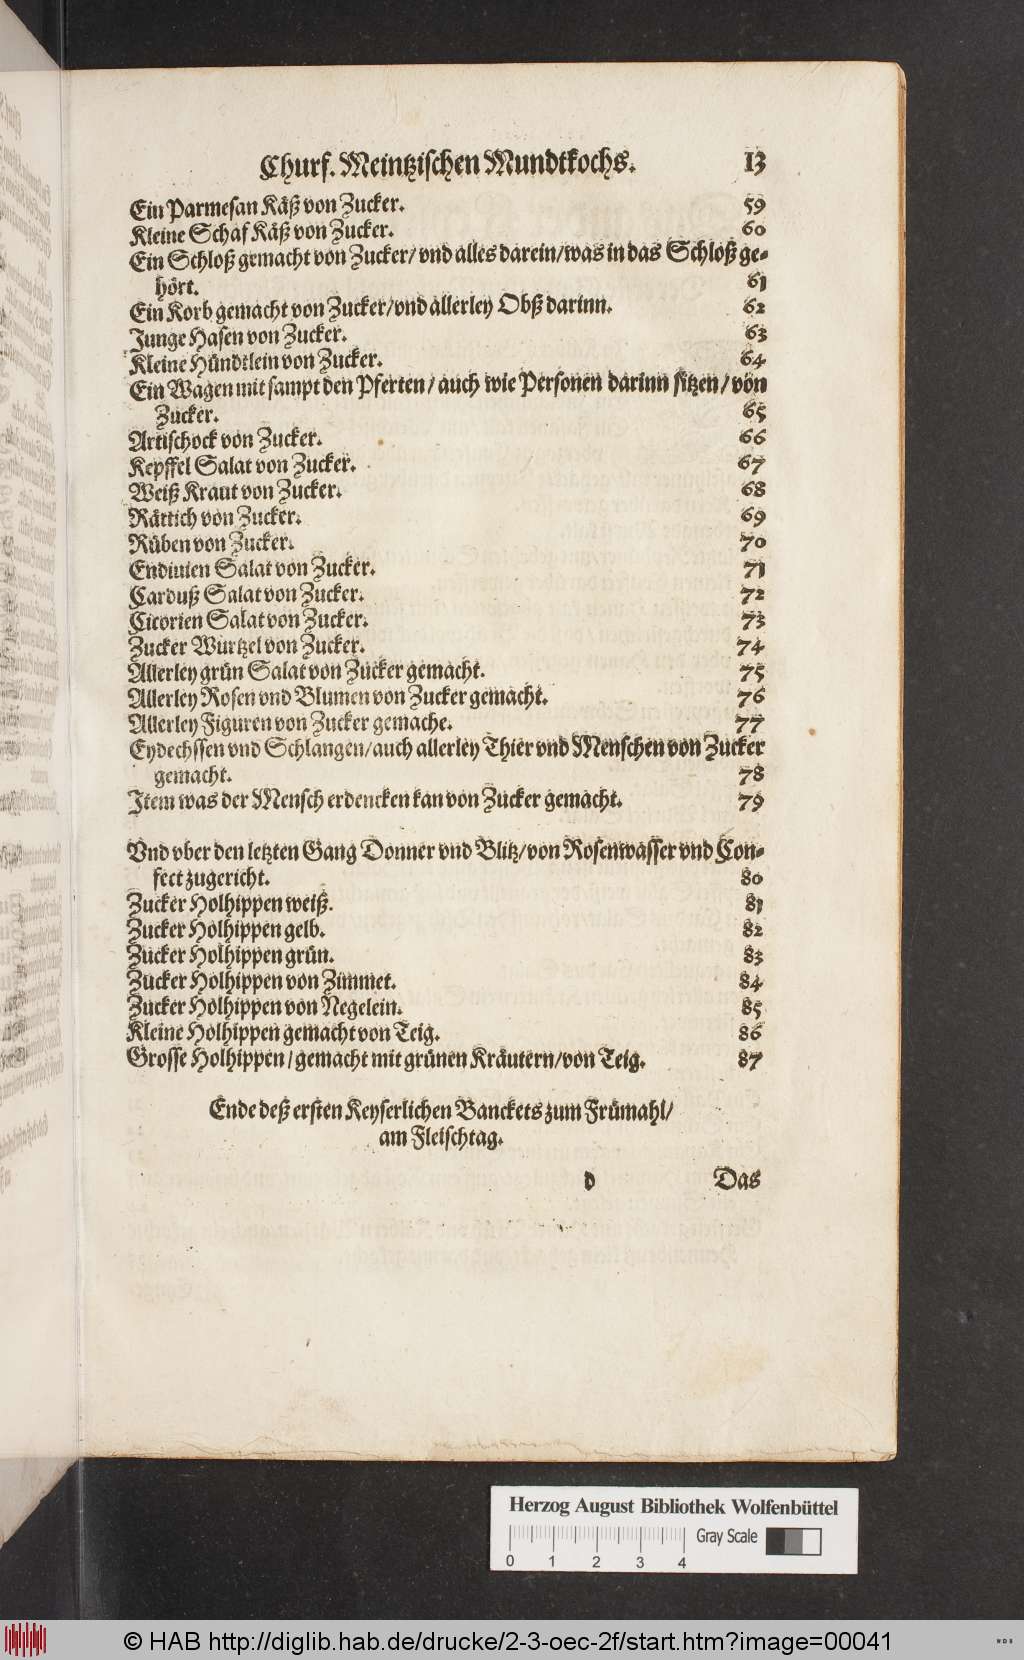 Churf. Meintzischen Mundtkochs. 13
Ein Parmesan Käß von Zucker. 59
Kleine Schaf Käß von Zucker. 60
Ein Schloß gemacht von Zucker/ vnd alles darein/ was in das Schloß ge-
hört. 61
Ein Korb gemacht von Zucker/ vnd allerley Obß darinn. 62
Junge Hasen von Zucker. 63
Kleine Hündtlein von Zucker. 64
Ein Wagen mit sampt den Pferten/ auch wie Personen darinn sitzen/ von
Zucker. 65
Artischock von Zucker. 66
Kepffel Salat von Zucker. 67
Weiß Kraut von Zucker. 68
Rättich von Zucker. 69
Rüben von Zucker. 70
Endiuien Salat von Zucker. 71
Carduß Salat von Zucker. 72
Cicorien Salat von Zucker. 73
Zucker Wurtzel von Zucker. 74
Allerley grün Salat von Zucker gemacht. 75
Allerley Rosen vnd Blumen von Zucker gemacht. 76
Allerley Figuren von Zucker gemache. 77
Eydechssen vnd Schlangen/ auch allerley Thier vnd Menschen von Zucker
gemacht. 78
Item was der Mensch erdencken kan von Zucker gemacht. 79
Vnd vber den letzten Gang Donner vnd Blitz/ von Rosenwasser vnd Con-
fect zugericht. 80
Zucker Holhippen weiß. 81
Zucker Holhippen gelb. 82
Zucker Holhippen grün. 83
Zucker Holhippen von Zimmet. 84
Zucker Holhippen von Negelein. 85
Kleine Holhippen gemacht von Teig. 86
Grosse Holhippen/ gemacht mit grünen Kräutern/ von Teig. 87
Ende deß ersten Keyserlichen Banckets zum Frümahl/
am Fleischtag.
d Das
Herzog August Bibliothek Wolfenbüttel
Gray Scale
0 1 2 3 4
© HAB http://diglib.hab.de/drucke/2-3-oec-2f/start.htm?image=00041